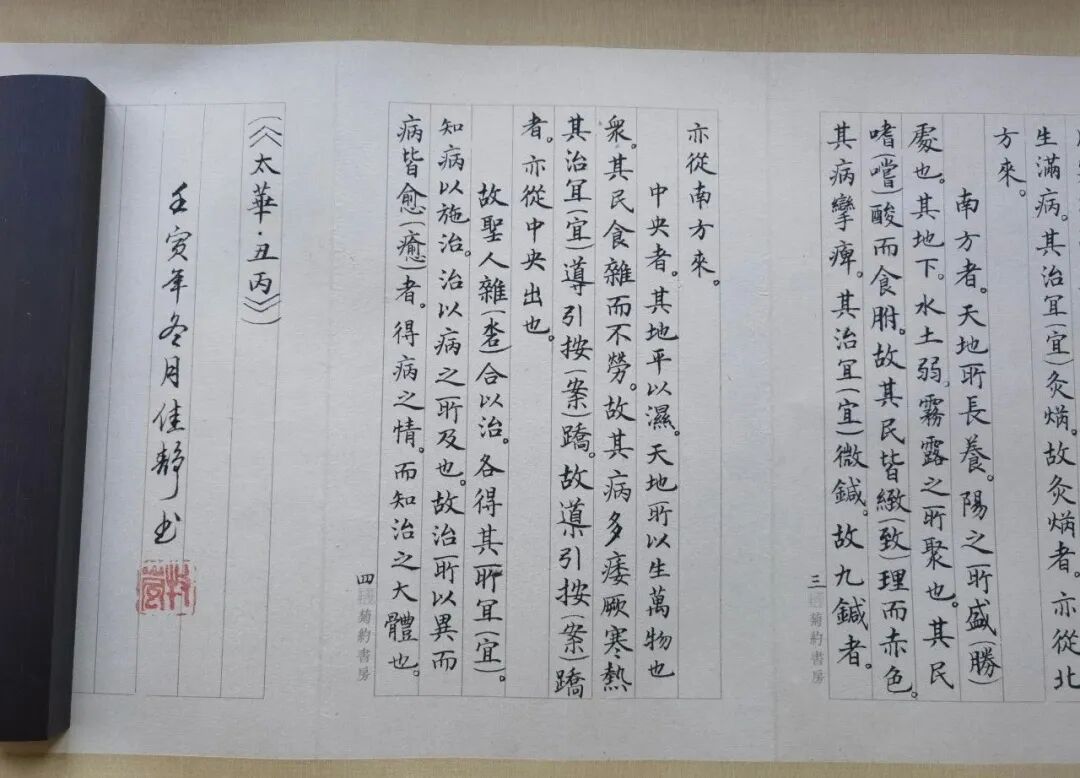 生滿病。其治冝（宜）灸焫。故灸焫者。亦從北
方來。
南方者。天地所長養。陽之所盛（勝）
處也。其地下。水土弱。霧露之所聚也。其民
嗜（嚐）酸而食胕。故其民皆緻（致）理而赤色。
其病攣痺。其治冝（宜）微鍼。故九鍼者。
三
菊約書房
亦從南方來。
中央者。其地平以濕。天地所以生萬物也
衆。其民食雜而不勞。故其病多痿厥寒熱
其治冝（宜）導引按（案）蹻。故導引按（案）蹻
者。亦從中央出也。
故聖人雜（杂）合以治。各得其所冝（宜）。
知病以施治。治以病之所及也。故治所以異而
病皆愈（癒）者。得病之情。而知治之大體也。
四
菊約書房
（《太華·丑丙》）
壬寅年冬月佳靜书